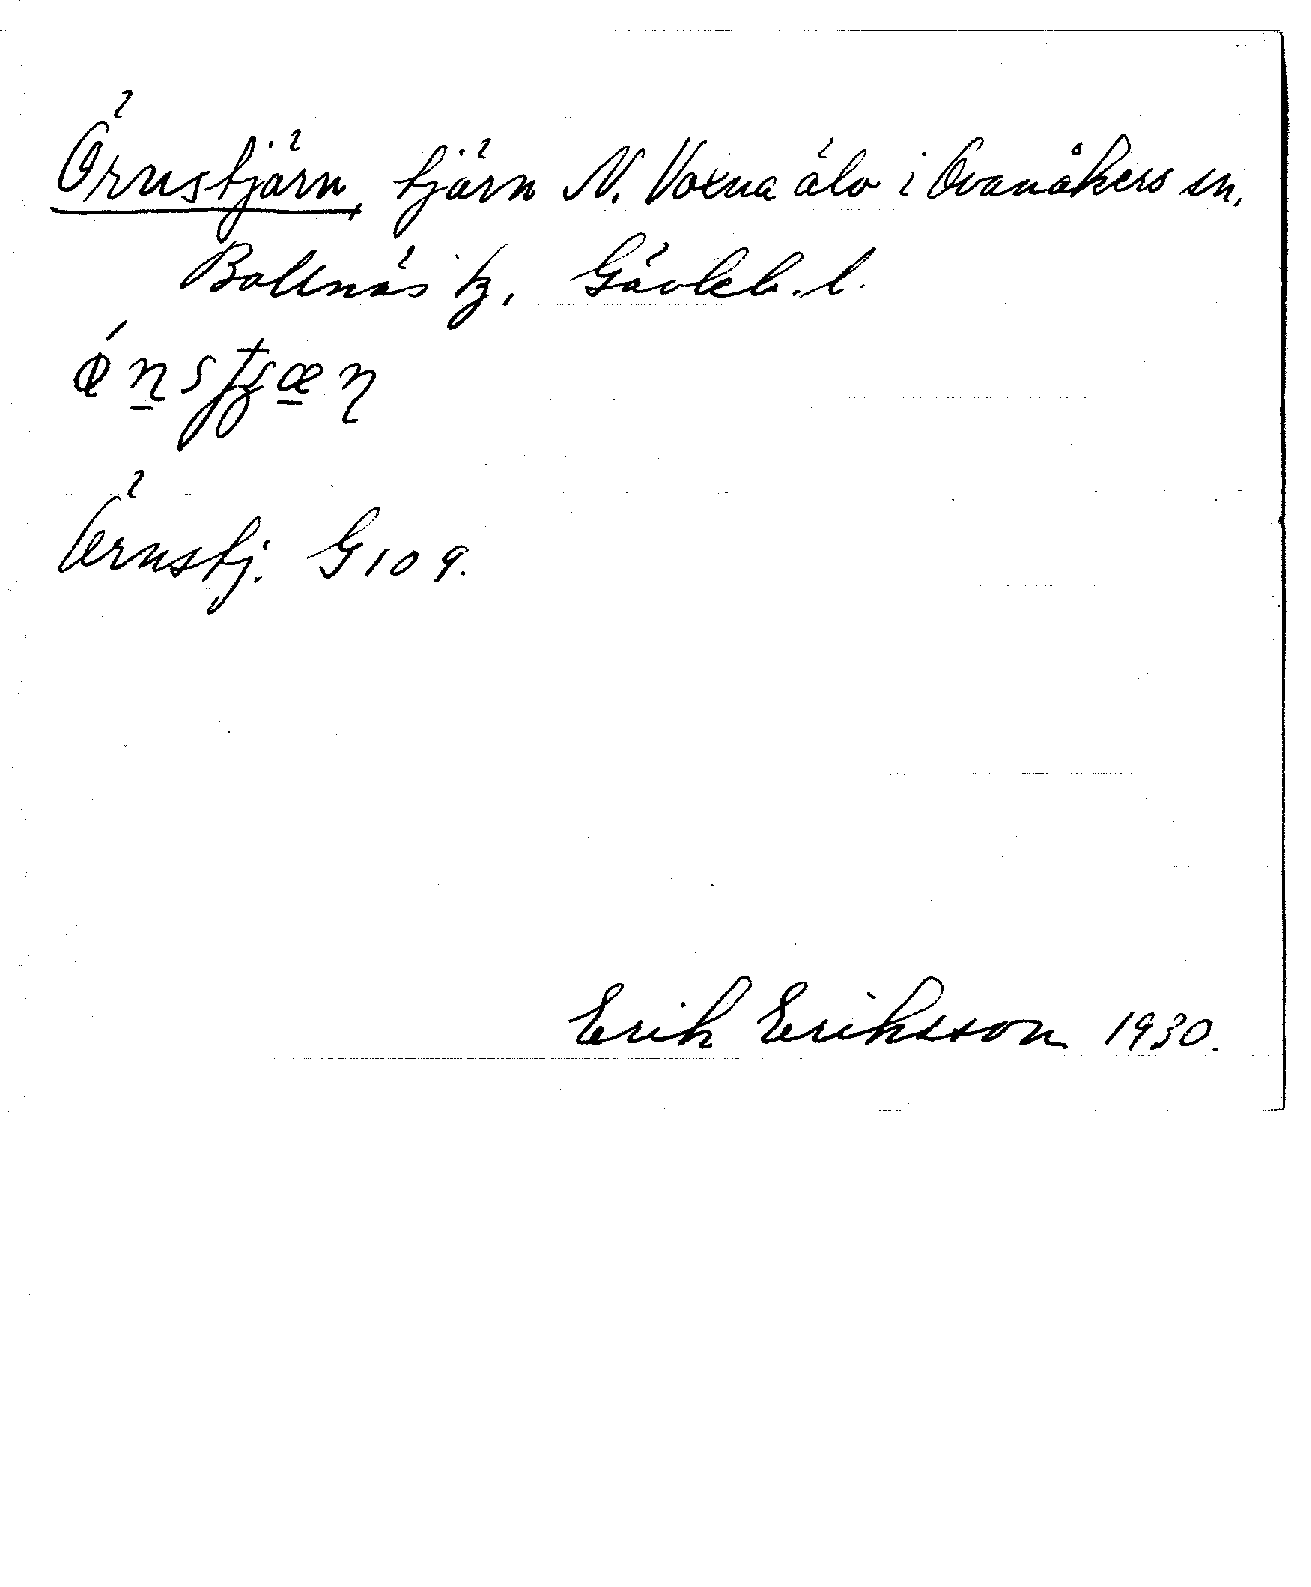 Örnstjärn, tjärn N. Voxna älv i Ovanåkers sn,
Bollnäs tg, Gävleb. l.
Örnstj. G 109.
Erik Eriksson 1930.